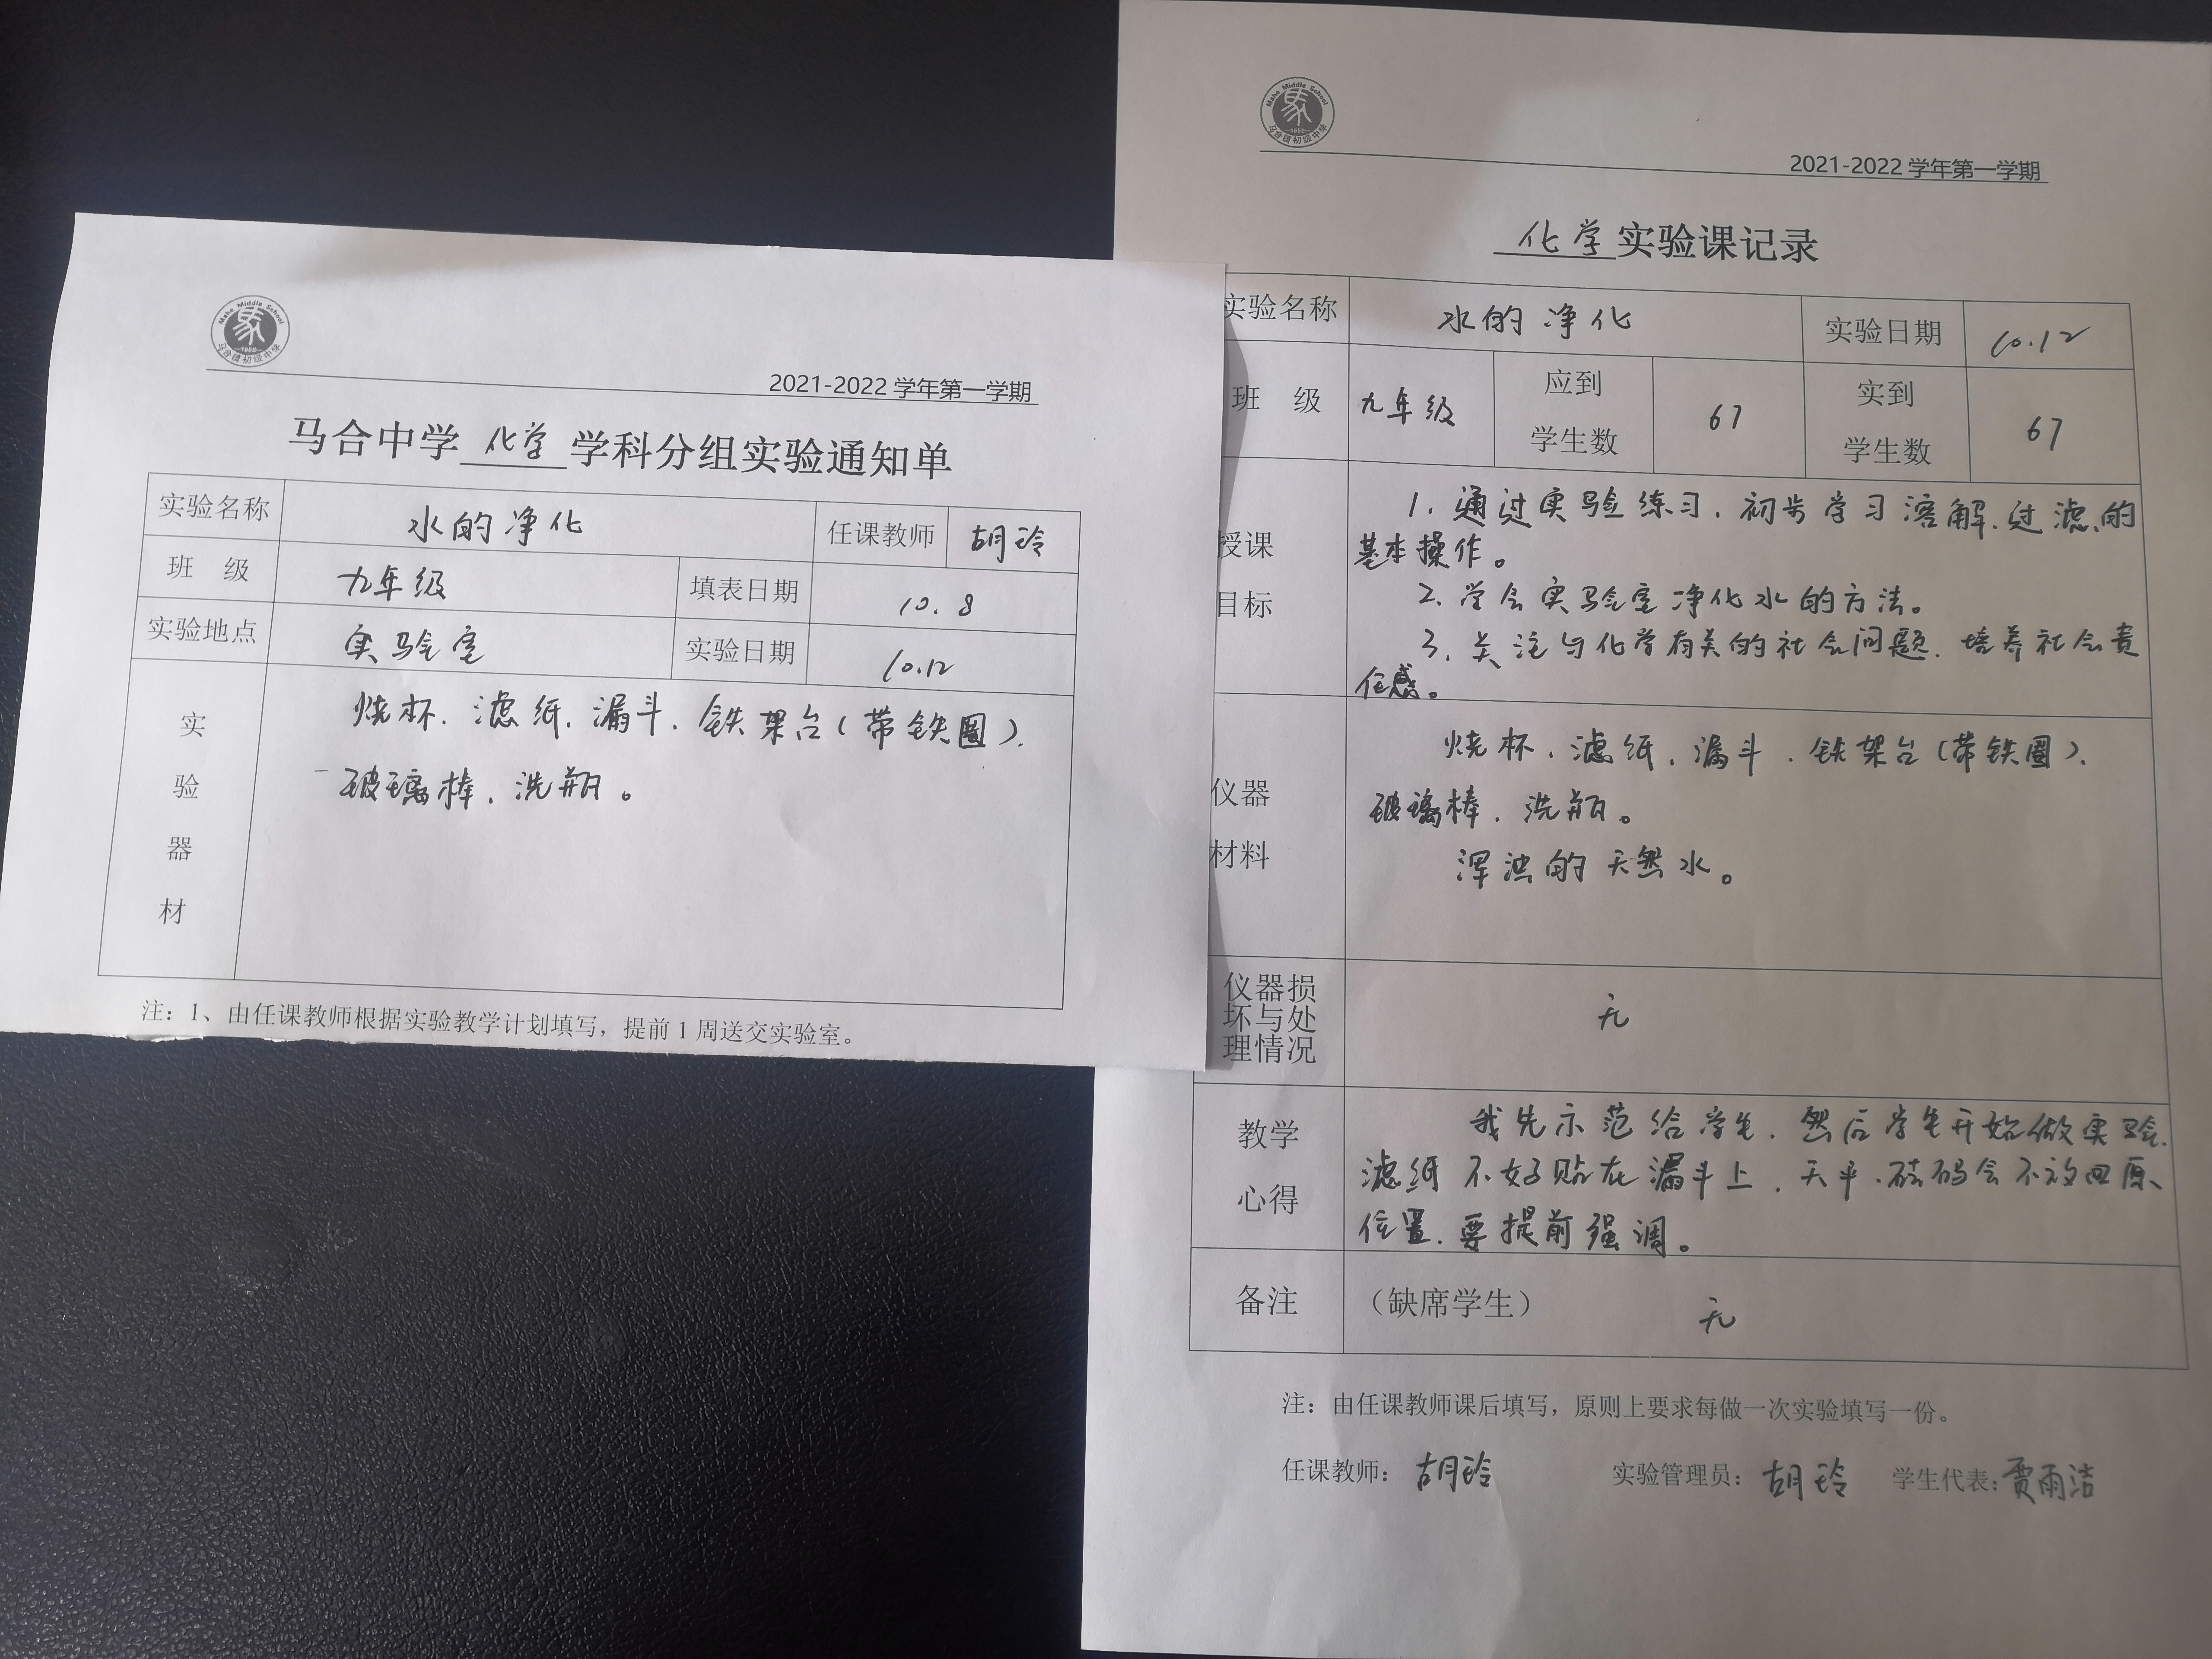 Mahe Middle School
1958
马合镇初级中学
2021-2022 学年第一学期
马合中学 化学 学科分组实验通知单
实验名称 水的净化 任课教师 胡玲
班 级 九年级 填表日期 10.8
实验地点 实验室 实验日期 10.12
实验器材
烧杯、滤纸、漏斗、铁架台(带铁圈)、
玻璃棒、洗瓶。
注：1、由任课教师根据实验教学计划填写，提前 1 周送交实验室。
Mahe Middle School
1958
马合镇初级中学
2021-2022 学年第一学期
化学 实验课记录
实验名称 水的净化 实验日期 10.12
班 级 九年级 应到学生数 67 实到学生数 67
授课目标
1.通过实验练习，初步学习溶解、过滤的
基本操作。
2.学会实验室净化水的方法。
3.关注与化学有关的社会问题，培养社会责
任感。
仪器材料
烧杯、滤纸、漏斗、铁架台(带铁圈)、
玻璃棒、洗瓶。
浑浊的天然水。
仪器损坏与处理情况 无
教学心得
我先示范给学生，然后学生开始做实验，
滤纸不好贴在漏斗上，天平、砝码会不放回原
位置，要提前强调。
备注 （缺席学生） 无
注：由任课教师课后填写，原则上要求每做一次实验填写一份。
任课教师：胡玲 实验管理员：胡玲 学生代表：贾雨洁